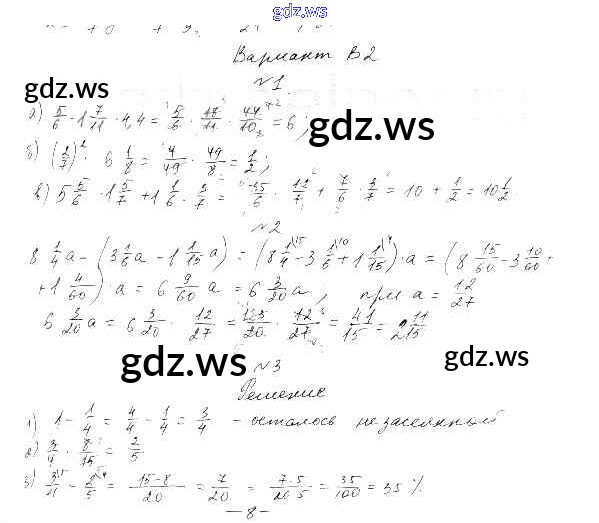 gdz.ws
Вариант В2
gdz.ws
№1
а) 5/6 · 1 7/11 · 4,4 = 5/6 · 18/11 · 44/10 = 6;
gdz.ws
б) (2/7)² · 6 1/8 = 4/49 · 49/8 = 1/2;
в) 5 5/6 · 1 5/7 + 1 1/6 · 3/7 = 35/6 · 12/7 + 7/6 · 3/7 = 10 + 1/2 = 10 1/2
№2
8 1/4 a - (3 1/6 a - 1 1/15 a) = (8 1/4 - 3 1/6 + 1 1/15) · a = (8 15/60 - 3 10/60 +
+ 1 4/60) · a = 6 9/60 a = 6 3/20 a, при a = 12/27
6 3/20 a = 6 3/20 · 12/27 = 123/20 · 12/27 = 41/15 = 2 11/15
gdz.ws
gdz.ws
№3
Решение
1) 1 - 1/4 = 4/4 - 1/4 = 3/4 - осталось незаселянной
2) 3/4 · 8/15 = 2/5
3) 3/4 - 2/5 = 15-8/20 = 7/20 = 7·5/20·5 = 35/100 = 35 %.
- 8 -
gdz.ws